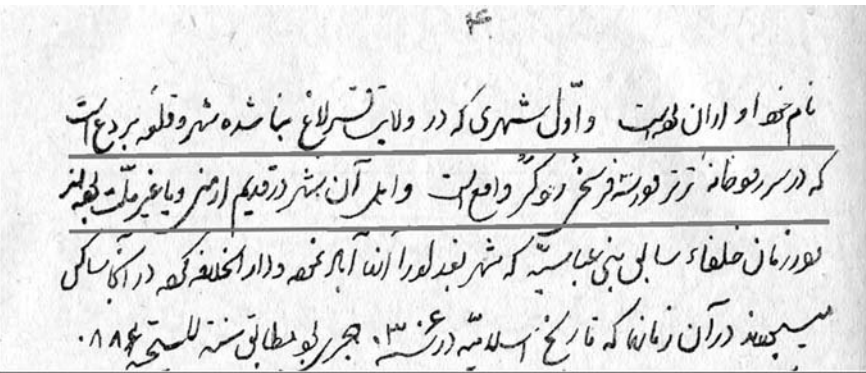 نام خود او اران بوده است و اوّل شهری که در ولایت قراباغ بنا شده شهر و قلعه بردع است
که در سر رودخانه ترتر در سه فرسخی رود کُر واقع است و اهل آن شهر در قدیم ارمنی و یا غیر ملّت بوده‌اند
در زمان خلفاء سابق بنی عباسیّه که شهر بغداد را آباد نموده دار الخلافه کرده در آنجا ساکن
میشدند در آن زمان که تاریخ اسلامیّه در سنه ۳۰۶ هجری بود مطابق سنه للمسیحیه ۸۸۶